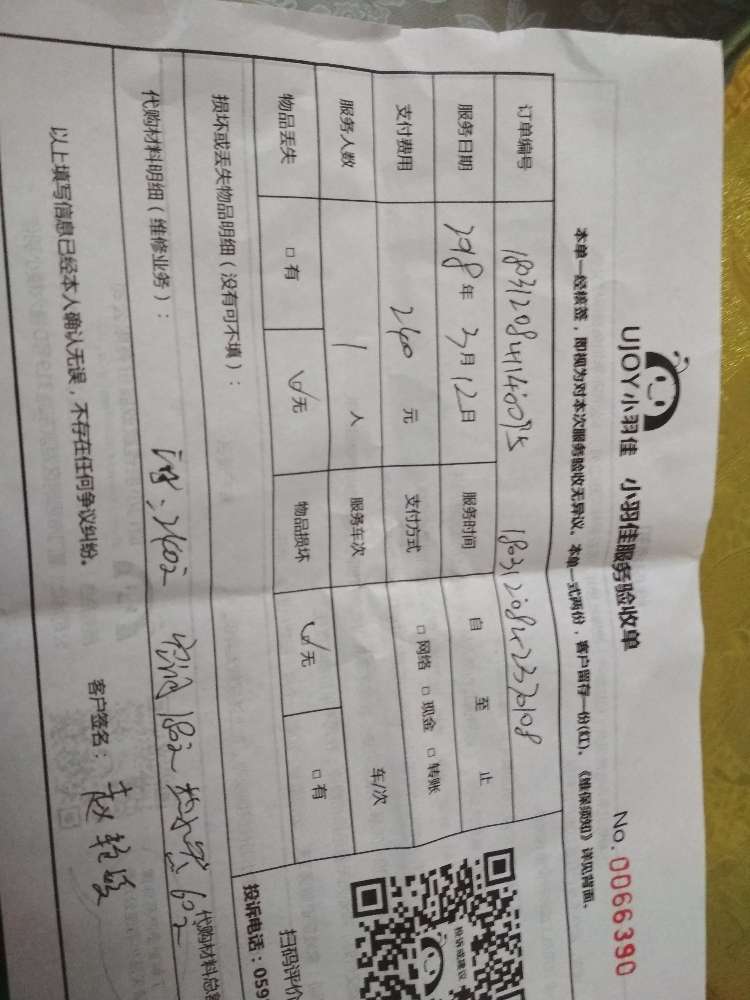 UJOY小羽佳 小羽佳服务验收单
No.0066390
本单一经核签，即视为对本次服务验收无异议。本单一式两份，客户留存一份(红)。《维保须知》详见背面。
订单编号
服务日期 2018年3月12日 服务时间 自 至 止
支付费用 240元 支付方式 □网络 □现金 □转账
服务人数 1人 服务车次 车/次
物品丢失 □有 ☑无 物品损坏 ☑无 □有
损坏或丢失物品明细（没有可不填）：
代购材料明细（维修业务）：
代购材料总
以上填写信息已经本人确认无误，不存在任何争议纠纷。
客户签名：
投诉或建议
扫码评价
投诉电话：059